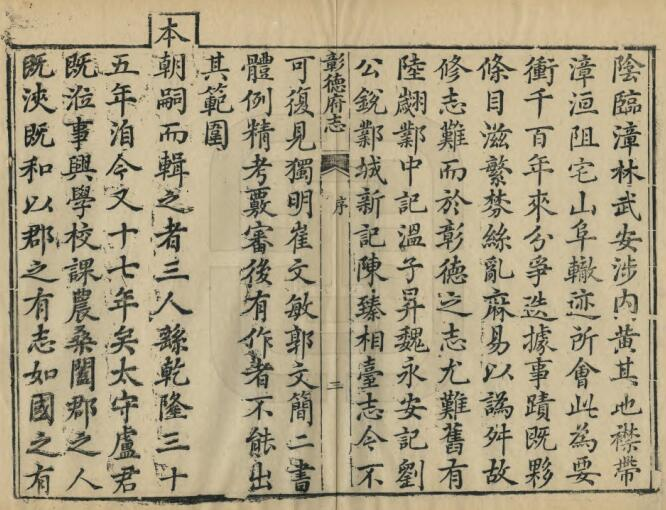 陰臨漳林武安涉內黃其地襟帶
漳洹阻宅山阜轍迹所會此為要
衝千百年來分爭迭據事蹟既夥
條目滋繁棼絲亂麻易以譌舛故
修志難而於彰德之志尤難舊有
陸翽鄴中記溫子昇魏永安記劉
公銳鄴城新記陳臻相臺志今不
彰德府志
序
二
可復見獨明崔文敏郭文簡二書
體例精考覈審後有作者不能出
其範圍
本朝嗣而輯之者三人繇乾隆三十
五年洎今又十七年矣太守盧君
既涖事興學校課農桑闔郡之人
既浹既和以郡之有志如國之有